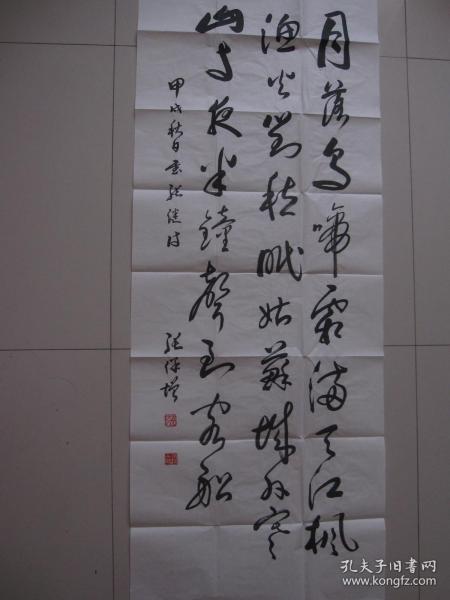 月落乌啼霜满天江枫
渔火對愁眠姑蘇城外寒
山寺夜半鐘聲到客船
甲戌秋日书张继诗
张保增
孔夫子旧书网
www.kongfz.com